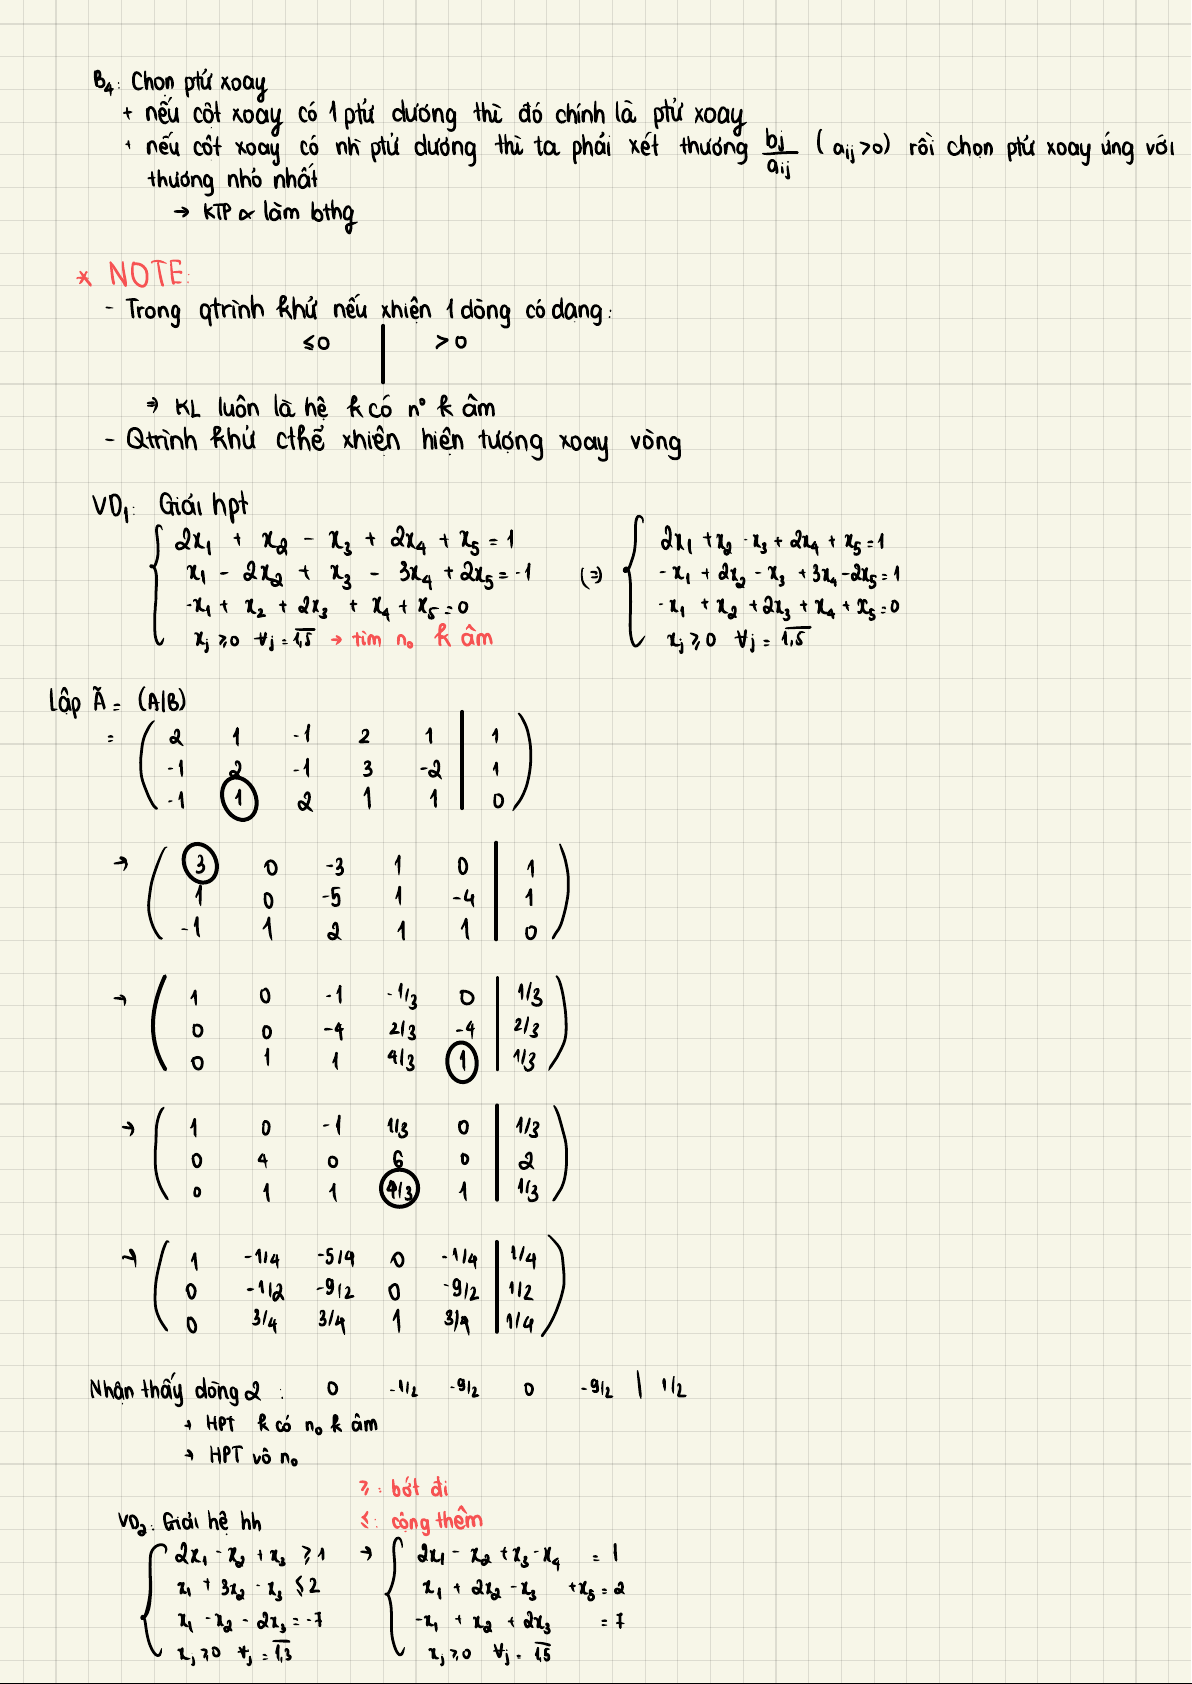 B₄: Chọn ptử xoay
+ nếu cột xoay có 1 ptử dương thì đó chính là ptử xoay
+ nếu cột xoay có nh ptử dương thì ta phải xét thương bj/aij (aij>0) rồi chọn ptử xoay ứng với
thương nhỏ nhất
→ KTP ∝ làm bthg
* NOTE:
- Trong qtrình khử nếu xhiện 1 dòng có dạng:
≤0 | >0
⇒ KL luôn là hệ k có n° k âm
- Qtrình khử cthể xhiện hiện tượng xoay vòng
VD₁: Giải hpt
2x₁ + x₂ - x₃ + 2x₄ + x₅ = 1
x₁ - 2x₂ + x₃ - 3x₄ + 2x₅ = -1
-x₁ + x₂ + 2x₃ + x₄ + x₅ = 0
xⱼ ≥ 0 ∀j = 1,5 → tìm n₀ k âm
(⇒)
2x₁ + x₂ - x₃ + 2x₄ + x₅ = 1
-x₁ + 2x₂ - x₃ + 3x₄ - 2x₅ = 1
-x₁ + x₂ + 2x₃ + x₄ + x₅ = 0
xⱼ ≥ 0 ∀j = 1,5
Lập Ã = (A|B)
= 2 1 -1 2 1 | 1
-1 2 -1 3 -2 | 1
-1 1 2 1 1 | 0
→ 3 0 -3 1 0 | 1
1 0 -5 1 -4 | 1
-1 1 2 1 1 | 0
→ 1 0 -1 -1/3 0 | 1/3
0 0 -4 2/3 -4 | 2/3
0 1 1 4/3 1 | 1/3
→ 1 0 -1 1/3 0 | 1/3
0 4 0 6 0 | 2
0 1 1 4/3 1 | 1/3
→ 1 -1/4 -5/4 0 -1/4 | 1/4
0 -1/2 -9/2 0 -9/2 | 1/2
0 3/4 3/4 1 3/4 | 1/4
Nhận thấy dòng 2 : 0 -1/2 -9/2 0 -9/2 | 1/2
→ HPT k có n₀ k âm
→ HPT vô n₀
≥: bớt đi
VD₂: Giải hệ hh ≤: cộng thêm
2x₁ - x₂ + x₃ ≥ 1
x₁ + 3x₂ - x₃ ≤ 2
x₁ - x₂ - 2x₃ = -7
xⱼ ≥ 0 ∀j = 1,3
→
2x₁ - x₂ + x₃ - x₄ = 1
x₁ + 2x₂ - x₃ + x₅ = 2
-x₁ + x₂ + 2x₃ = 7
xⱼ ≥ 0 ∀j = 1,5